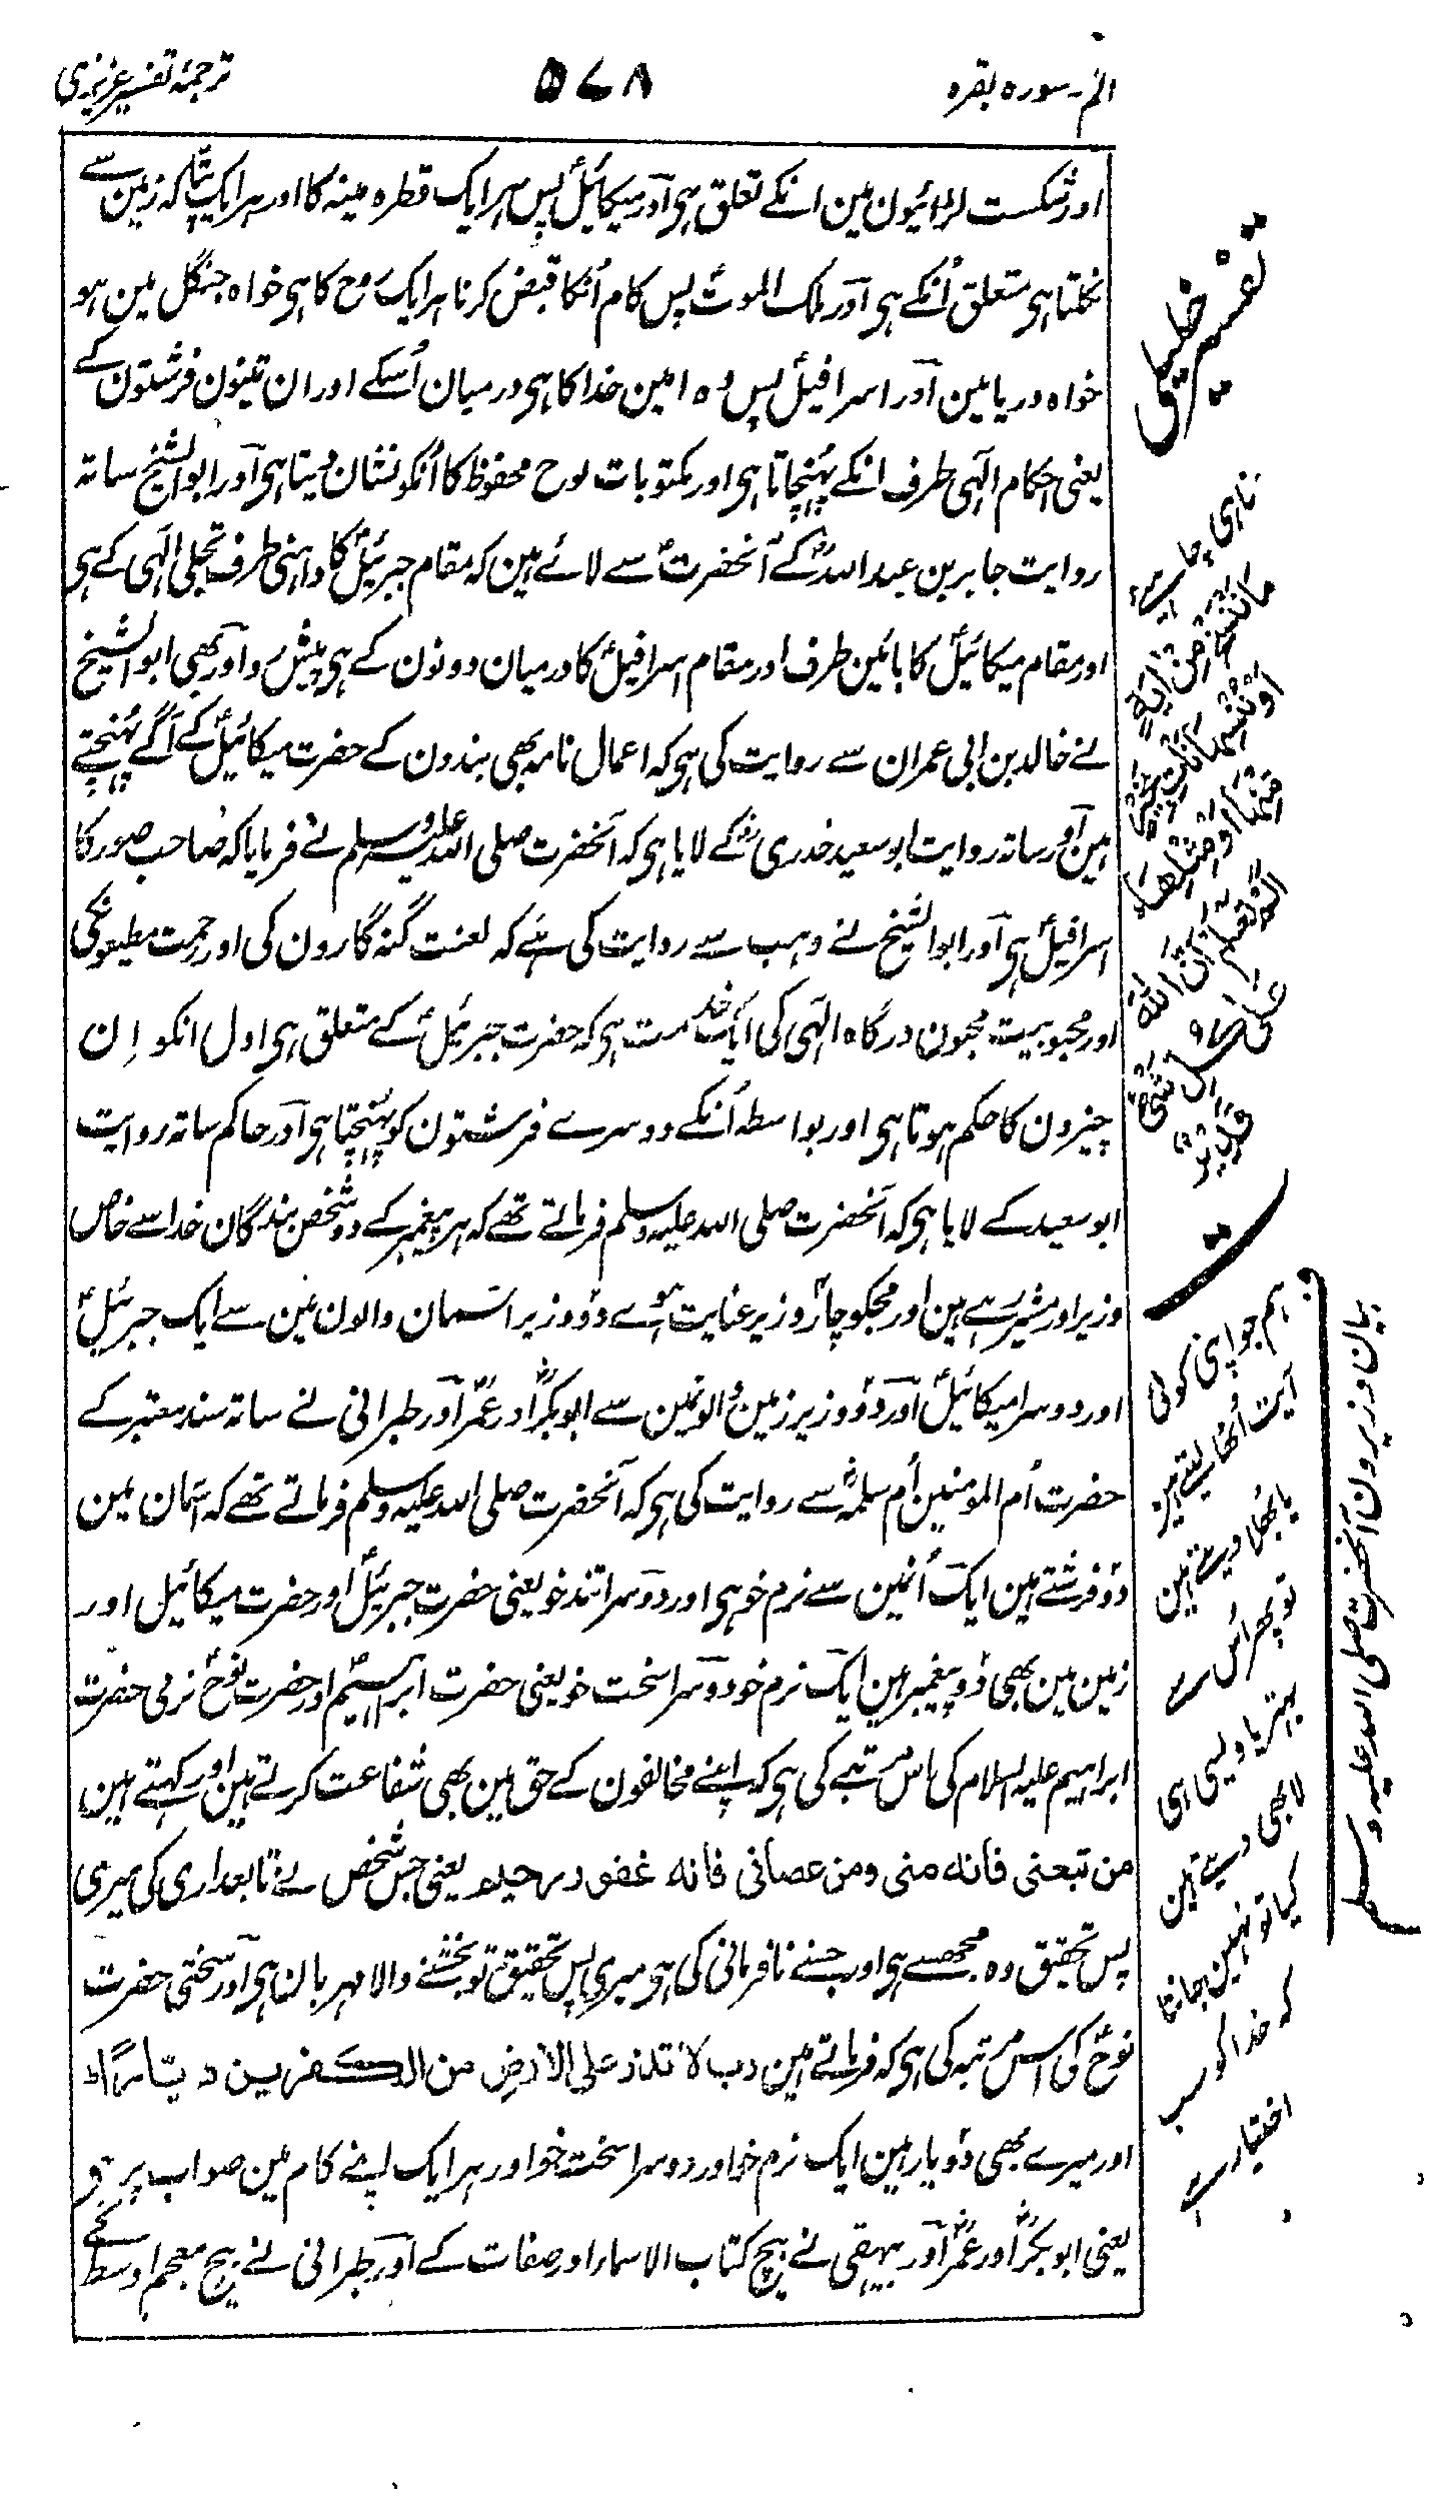 الم - سورہ بقرہ
۵۷۸
ترجمۂ تفسیر عزیزی
اور شکست لڑائیون مین انکے تعلق ہی اور میکائیلؑ پس ہر ایک قطرہ مینہ کا اور ہر ایک پتا کہ زمین سے
نکلتا ہی متعلق اُنکے ہی اور ملک الموتؑ پس کام اُنکا قبض کرنا ہر ایک روح کا ہی خواہ جنگل مین ہو
خواہ دریا مین اور اسرافیلؑ پس وہ امین خدا کا ہی درمیان اُسکے اور ان تینون فرشتون کے
یعنی احکام الٰہی طرف انکے پہنچاتا ہی اور مکتوبات لوح محفوظ کا اُنکو نشان دیتا ہی اور ابو الشیخ ساتہ
روایت جابر بن عبد اللہؓ کے آنحضرتؐ سے لائے ہین کہ مقام جبرئیلؑ کا داہنی طرف تجلی الٰہی کے ہی
اور مقام میکائیلؑ کا بائین طرف اور مقام اسرافیلؑ کا درمیان دونون کے ہی پیش رو اور بھی ابو الشیخ
نے خالد بن ابی عمران سے روایت کی ہی کہ اعمال نامہ بھی بندون کے حضرت میکائیلؑ کے آگے پہنچتے
ہین اور ساتہ روایت ابو سعید خدریؓ کے لایا ہی کہ آنحضرت صلی اللہ علیہ وسلم نے فرمایا کہ صاحب صور کا
اسرافیلؑ ہی اور ابو الشیخ نے وہب سے روایت کی ہے کہ لعنت گنہ گارون کی اور رحمت مطیعونکی
اور محبوبیت محبون درگاہ الٰہی کی ایک خدمت ہی کہ حضرت جبرئیلؑ کے متعلق ہی اول انکو اِن
چیزون کا حکم ہوتا ہی اور بواسطہ اُنکے دوسرے فرشتون کو پہنچتا ہی اور حاکم ساتہ روایت
ابو سعید کے لایا ہی کہ آنحضرت صلی اللہ علیہ وسلم فرماتے تھے کہ ہر پیغمبر کے دو شخص بندگان خدا سے خاص
وزیر اور مشیر رہے ہین اور مجکو چار وزیر عنایت ہوے دو وزیر آسمان والون مین سے ایک جبرئیلؑ
اور دوسرا میکائیلؑ اور دو وزیر زمین والونمین سے ابوبکرؓ اور عمرؓ اور طبرانی نے ساتہ سند معتبر کے
حضرت اُم المومنین اُم سلمہؓ سے روایت کی ہی کہ آنحضرت صلی اللہ علیہ وسلم فرماتے تھے کہ آسمان مین
دو فرشتے ہین ایک اُنمین سے نرم خو ہی اور دوسرا تند خو یعنی حضرت جبرئیلؑ اور حضرت میکائیل اور
زمین مین بھی دو پیغمبر ہین ایک نرم خو دوسرا سخت خو یعنی حضرت ابراہیمؑ اور حضرت نوحؑ نرمی حضرت
ابراہیم علیہ السلام کی اس مرتبے کی ہی کہ اپنے مخالفون کے حق مین بھی شفاعت کرتے ہین اور کہتے ہین
من تبعنی فانه منی ومن عصانی فانه غفور رحیم یعنی جس شخص نے تابعداری کی میری
پس تحقیق وہ مجھسے ہی اور جسنے نافرمانی کی ہی میری پس تحقیق تو بخشنے والا مہربان ہی اور سختی حضرت
نوحؑ کی اس مرتبہ کی ہی کہ فرماتے ہین رب لا تذر علی الارض من الکفرین دیارا
اور میرے بھی دو یار ہین ایک نرم خو اور دوسرا سخت خو اور ہر ایک اپنے کام مین صواب پر ہی
یعنی ابوبکرؓ اور عمرؓ اور بیہقی نے بیچ کتاب الاسماء اور صفات کے اور طبرانی نے بیچ معجم اوسط کے
تفسیر خلیق
مَا نَنْسَخْ مِنْ اٰيَةٍ
اَوْ نُنْسِهَا نَاْتِ بِخَيْرٍ
مِنْهَا اَوْ مِثْلِهَا
اَلَمْ تَعْلَمْ اَنَّ اللهَ
عَلٰى كُلِّ شَيْءٍ
قَدِيْرٌ
ہم جو اپنی کوئی
آیت اُٹھا لیتے ہین
یا بھُلا دیتے ہین
تو پھر اُس سے
بہتر یا ویسی ہی
لا بھی دیتے ہین
کیا تو نہین جانتا
کہ خدا کو سب
اختیار ہے
بیان وزیرون آنحضرت صلی اللہ علیہ وسلم